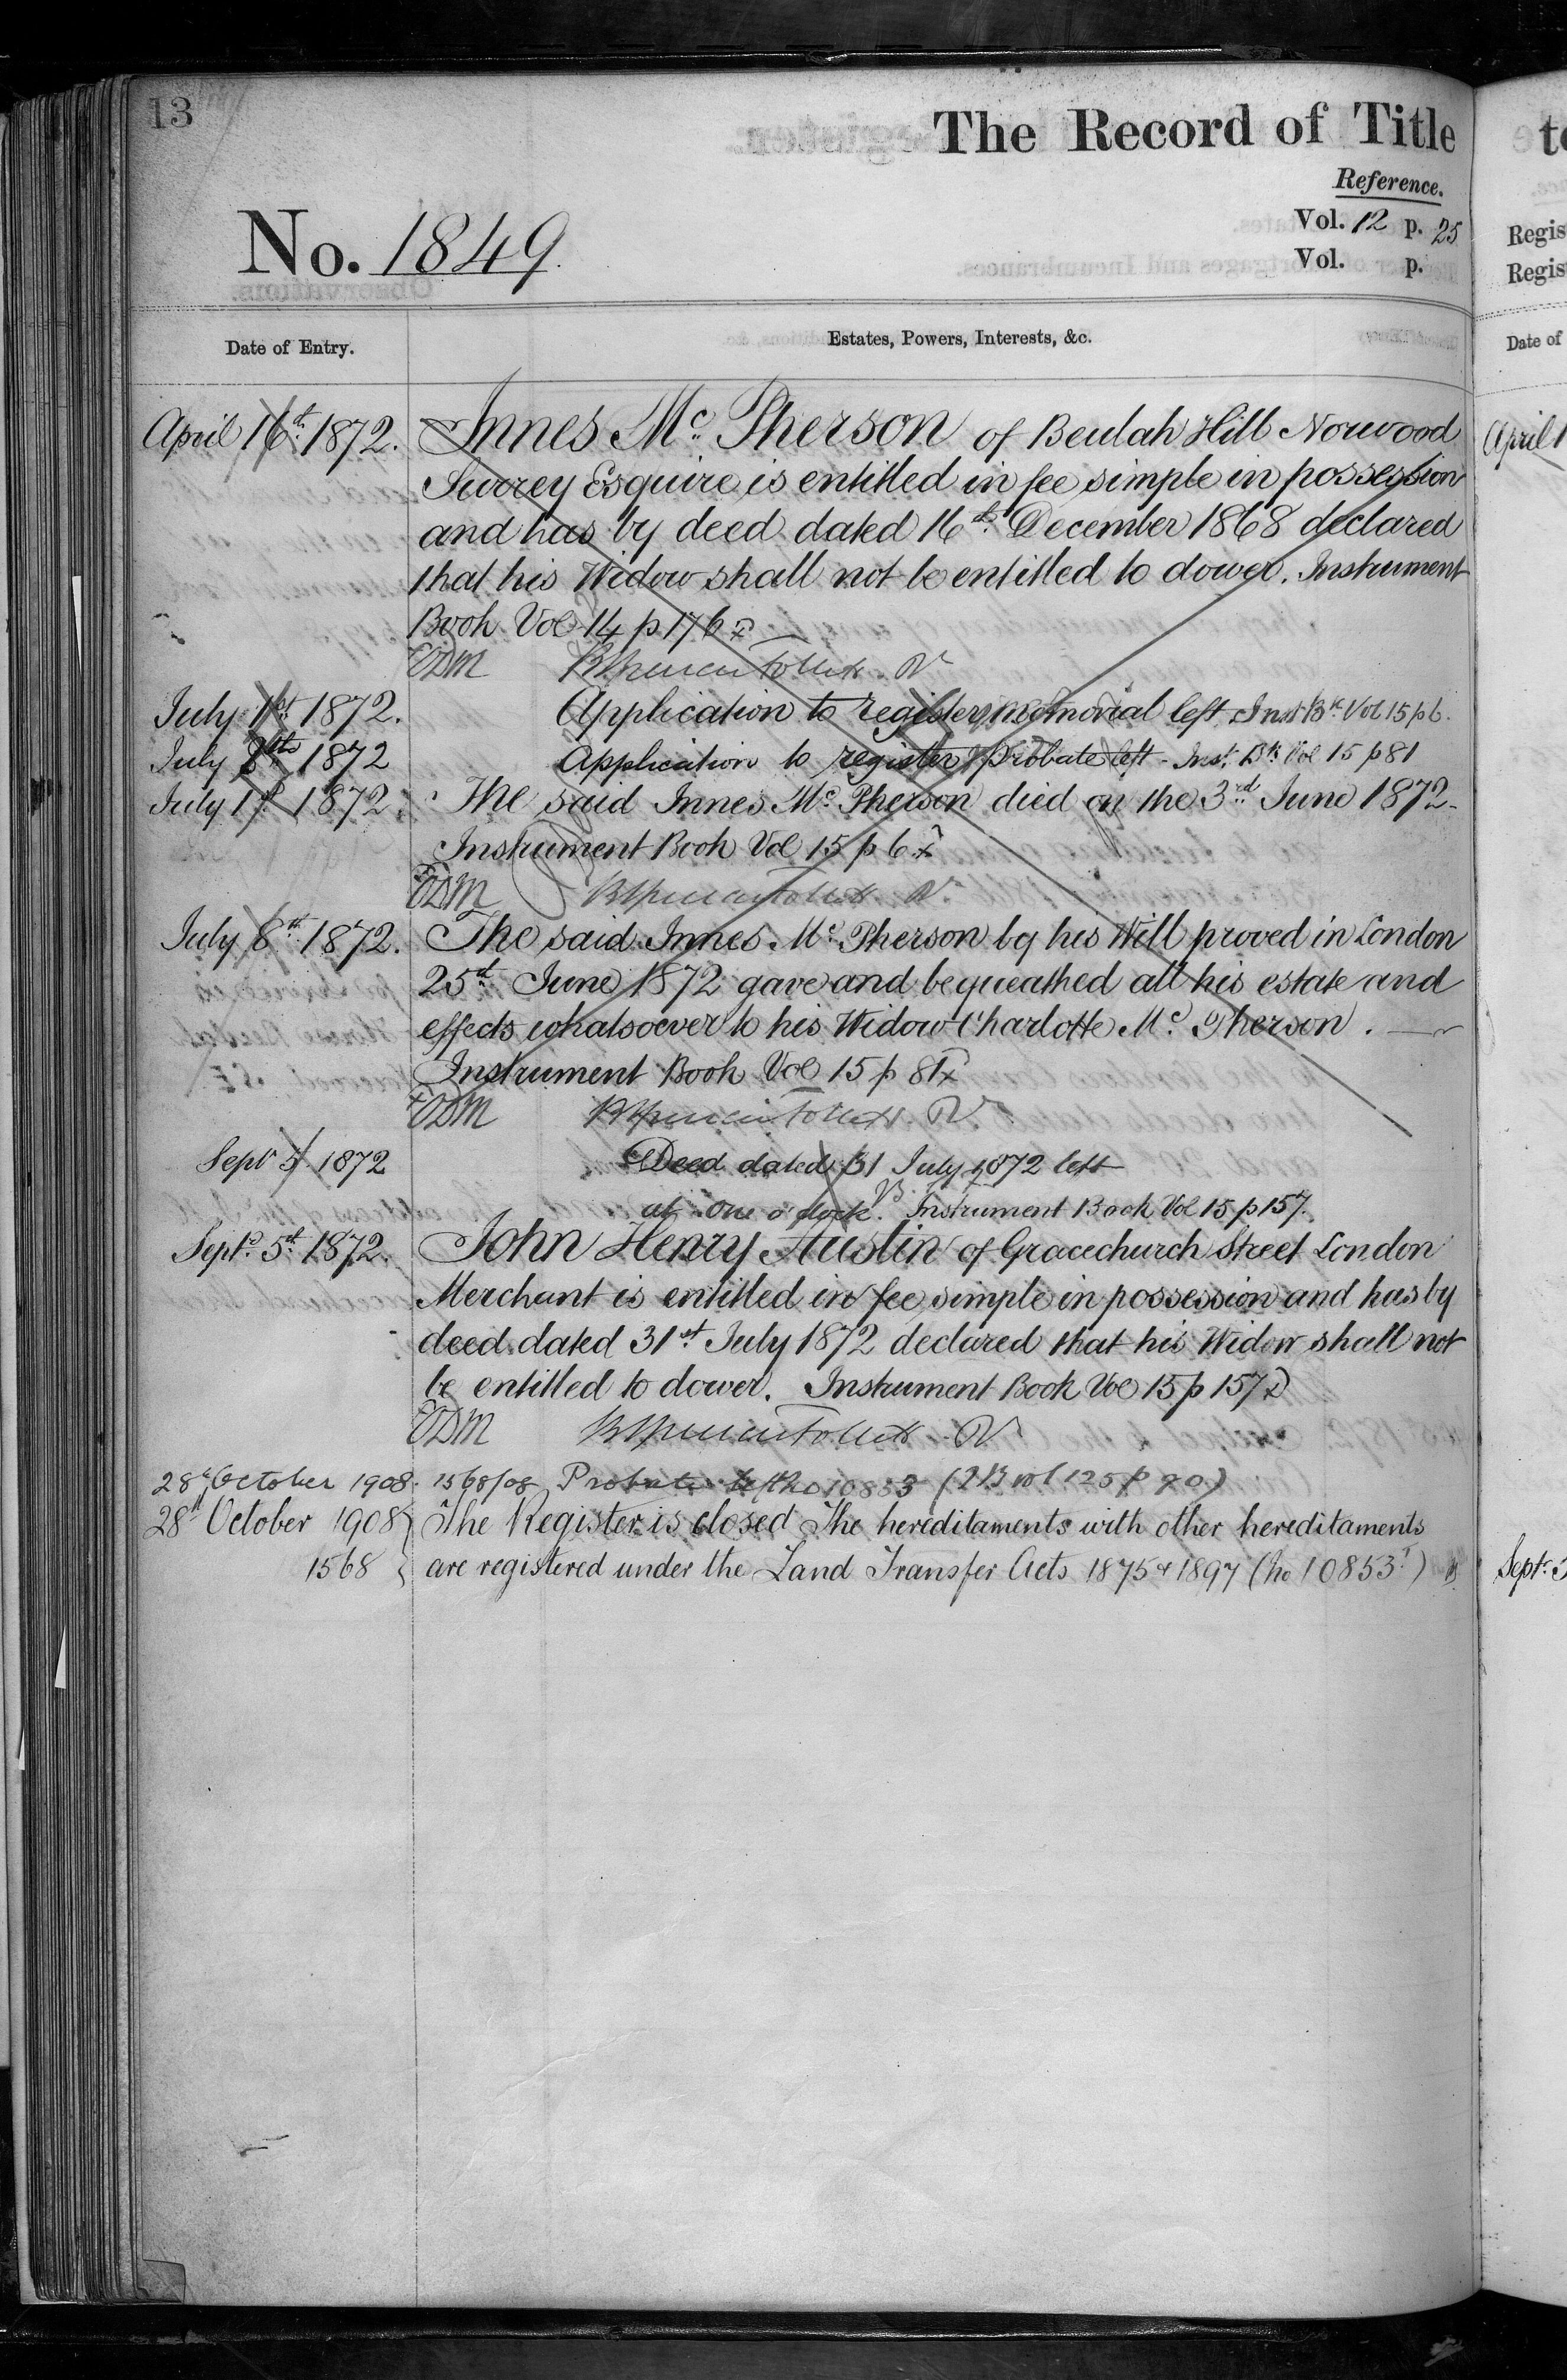 13
The Record of Title
Reference.
Vol. 12 p. 25
No. 1849.
Vol. p.
Date of Entry.
Estates, Powers, Interests, &c.
April 16th 1872. Innes Mc Pherson of Beulah Hill Norwood
Surrey Esquire is entitled in fee simple in possession
and has by deed dated 16th December 1868 declared
that his Widow shall not be entitled to dower. Instrument
Book Vol 14 p 176
July 1st 1872. Application to register memorial left Inst Bk Vol 15 p 6.
July 8th 1872 Application to register Probate left - Inst. Bk Vol 15 p 81
July 1st 1872. The said Innes Mc Pherson died on the 3rd June 1872
Instrument Book Vol 15 p 6
July 8th 1872. The said Innes Mc Pherson by his Will proved in London
25th June 1872 gave and bequeathed all his estate and
effects whatsoever to his Widow Charlotte Mc Pherson.
Instrument Book Vol 15 p 81
Sept 5 1872 Deed dated 31 July 1872 left
at One o'clock. Instrument Book Vol 15 p 157.
Septr 5th 1872. John Henry Austin of Gracechurch Street London
Merchant is entitled in fee simple in possession and has by
deed dated 31st July 1872 declared that his Widow shall not
be entitled to dower. Instrument Book Vol 15 p 157
28th October 1908. 1568/08 Probate left (IB vol 125 p 90)
28th October 1908 The Register is closed The hereditaments with other hereditaments
1568 are registered under the Land Transfer Acts 1875 & 1897 (no 10853)
Regis
Regis
Date of
April 1
Septr 5